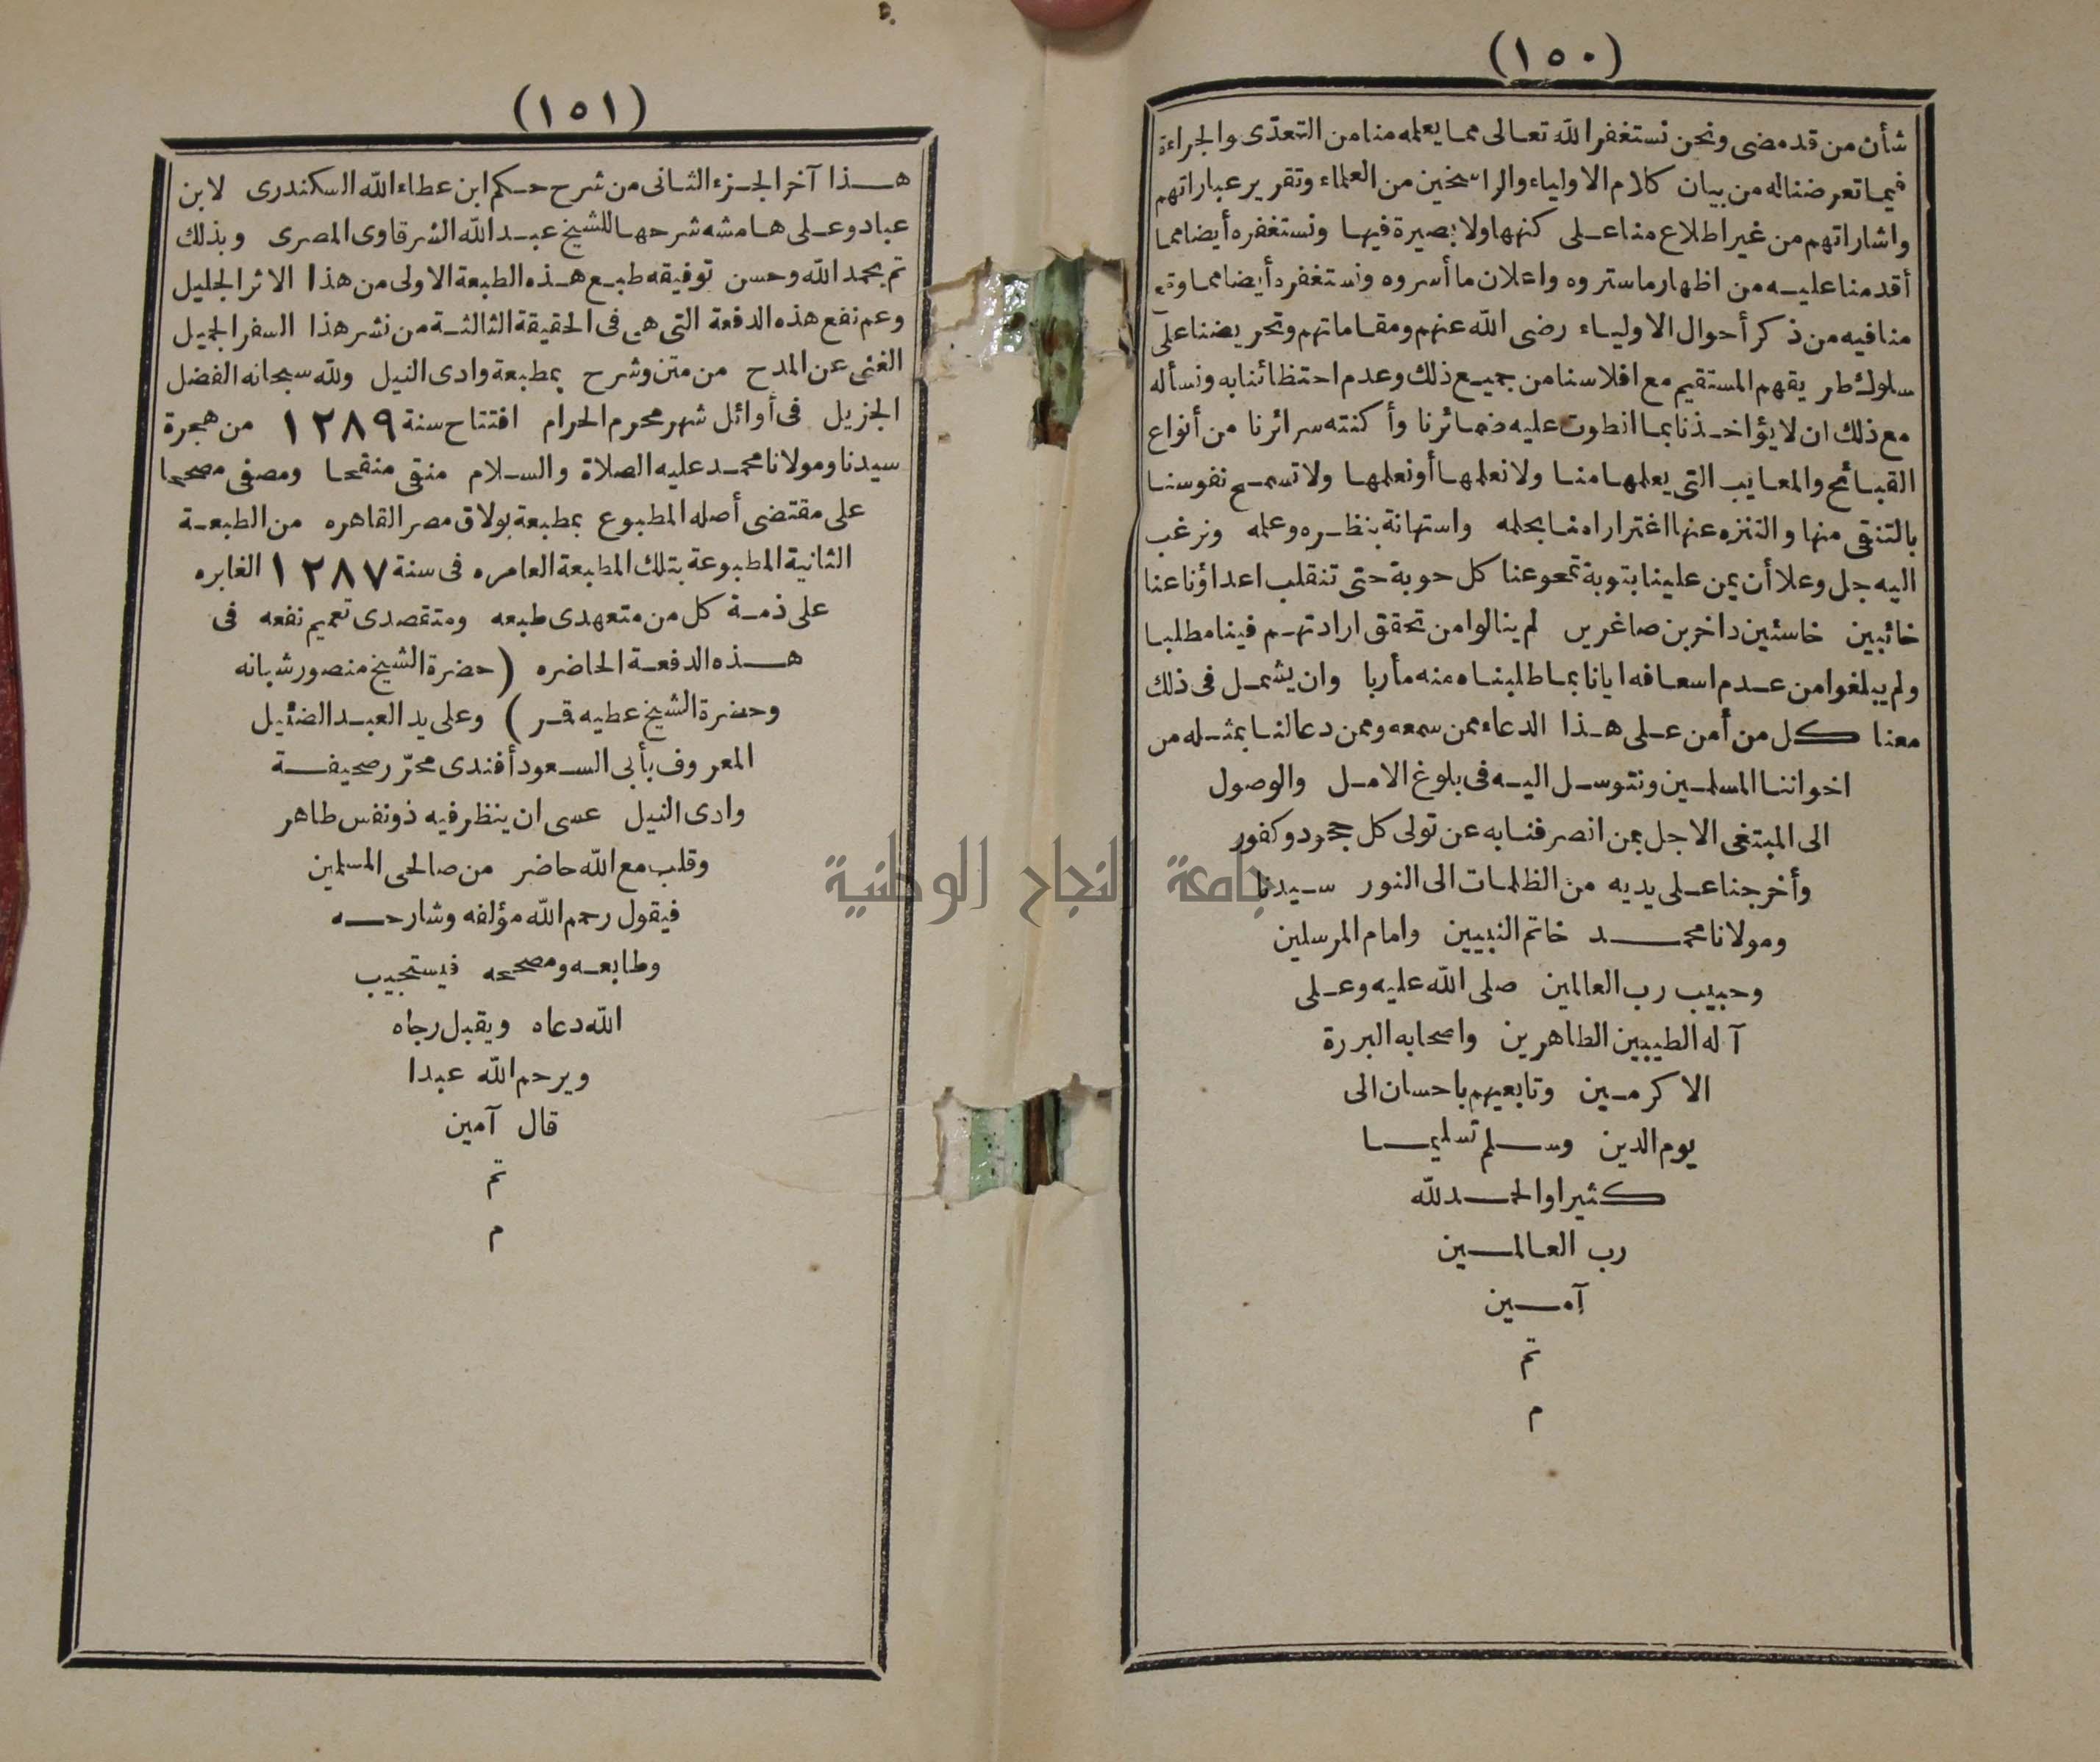 (١٥٠)
شأن من قد مضى ونحن نستغفر الله تعالى مما يعلمه منا من التعدّى والجراءة
فيما تعرضنا له من بيان كلام الاولياء والراسخين من العلماء وتقرير عباراتهم
واشاراتهم من غير اطلاع منا على كنهها ولا بصيرة فيها ونستغفره أيضا مما
أقدمنا عليه من اظهار ما ستروه واعلان ما أسروه ونستغفره أيضا مما وقع
منا فيه من ذكر أحوال الاولياء رضى الله عنهم ومقاماتهم وتحريضنا على
سلوك طريقهم المستقيم مع افلاسنا من جميع ذلك وعدم احتظائنا به ونسأله
مع ذلك ان لا يؤاخذنا بما انطوت عليه ضمائرنا وأكنته سرائرنا من أنواع
القبائح والمعايب التى يعلمها منا ولا نعلمها أو نعلمها ولا تسمح نفوسنا
بالتنقى منها والتنزه عنها اغترارا منا بحلمه واستهانة بنظره وعلمه ونرغب
اليه جل وعلا أن يمن علينا بتوبة تمحو عنا كل حوبة حتى تنقلب اعداؤنا عنا
خائبين خاسئين داخرين صاغرين لم ينالوا من تحقق ارادتهم فينا مطلبا
ولم يبلغوا من عدم اسعافه ايانا بما طلبناه منه مأربا وان يشمل فى ذلك
معنا كل من أمن على هذا الدعاء ممن سمعه وممن دعا لنا بمثله من
اخواننا المسلمين ونتوسل اليه فى بلوغ الامل والوصول
الى المبتغى الاجل بمن انصرفنا به عن تولى كل جحود وكفور
وأخرجنا على يديه من الظلمات الى النور سيدنا
ومولانا محمد خاتم النبيين وامام المرسلين
وحبيب رب العالمين صلى الله عليه وعلى
آله الطيبين الطاهرين واصحابه البررة
الاكرمين وتابعيهم باحسان الى
يوم الدين وسلم تسليما
كثيرا والحمد لله
رب العالمين
آمين
تم
م
(١٥١)
هذا آخر الجزء الثانى من شرح حكم ابن عطاء الله السكندرى لابن
عباد وعلى هامشه شرحها للشيخ عبد الله الشرقاوى المصرى وبذلك
تم بحمد الله وحسن توفيقه طبع هذه الطبعة الاولى من هذا الاثر الجليل
وعم نفع هذه الدفعة التى هى فى الحقيقة الثالثة من نشر هذا السفر الجميل
الغنى عن المدح من متن وشرح بمطبعة وادى النيل ولله سبحانه الفضل
الجزيل فى أوائل شهر محرم الحرام افتتاح سنة ١٢٨٩ من هجرة
سيدنا ومولانا محمد عليه الصلاة والسلام منقى منقحا ومصفى مصححا
على مقتضى أصله المطبوع بمطبعة بولاق مصر القاهره من الطبعة
الثانية المطبوعة بتلك المطبعة العامره فى سنة ١٢٨٧ الغابره
على ذمة كل من متعهدى طبعه ومتقصدى تعميم نفعه فى
هذه الدفعة الحاضره (حضرة الشيخ منصور شبانه
وحضرة الشيخ عطيه قمر) وعلى يد العبد الضئيل
المعروف بأبى السعود أفندى محرّر صحيفة
وادى النيل عسى ان ينظر فيه ذو نفس طاهر
وقلب مع الله حاضر من صالحى المسلمين
فيقول رحم الله مؤلفه وشارحه
وطابعه ومصححه فيستجيب
الله دعاه ويقبل رجاه
ويرحم الله عبدا
قال آمين
تم
م
جامعة النجاح الوطنية